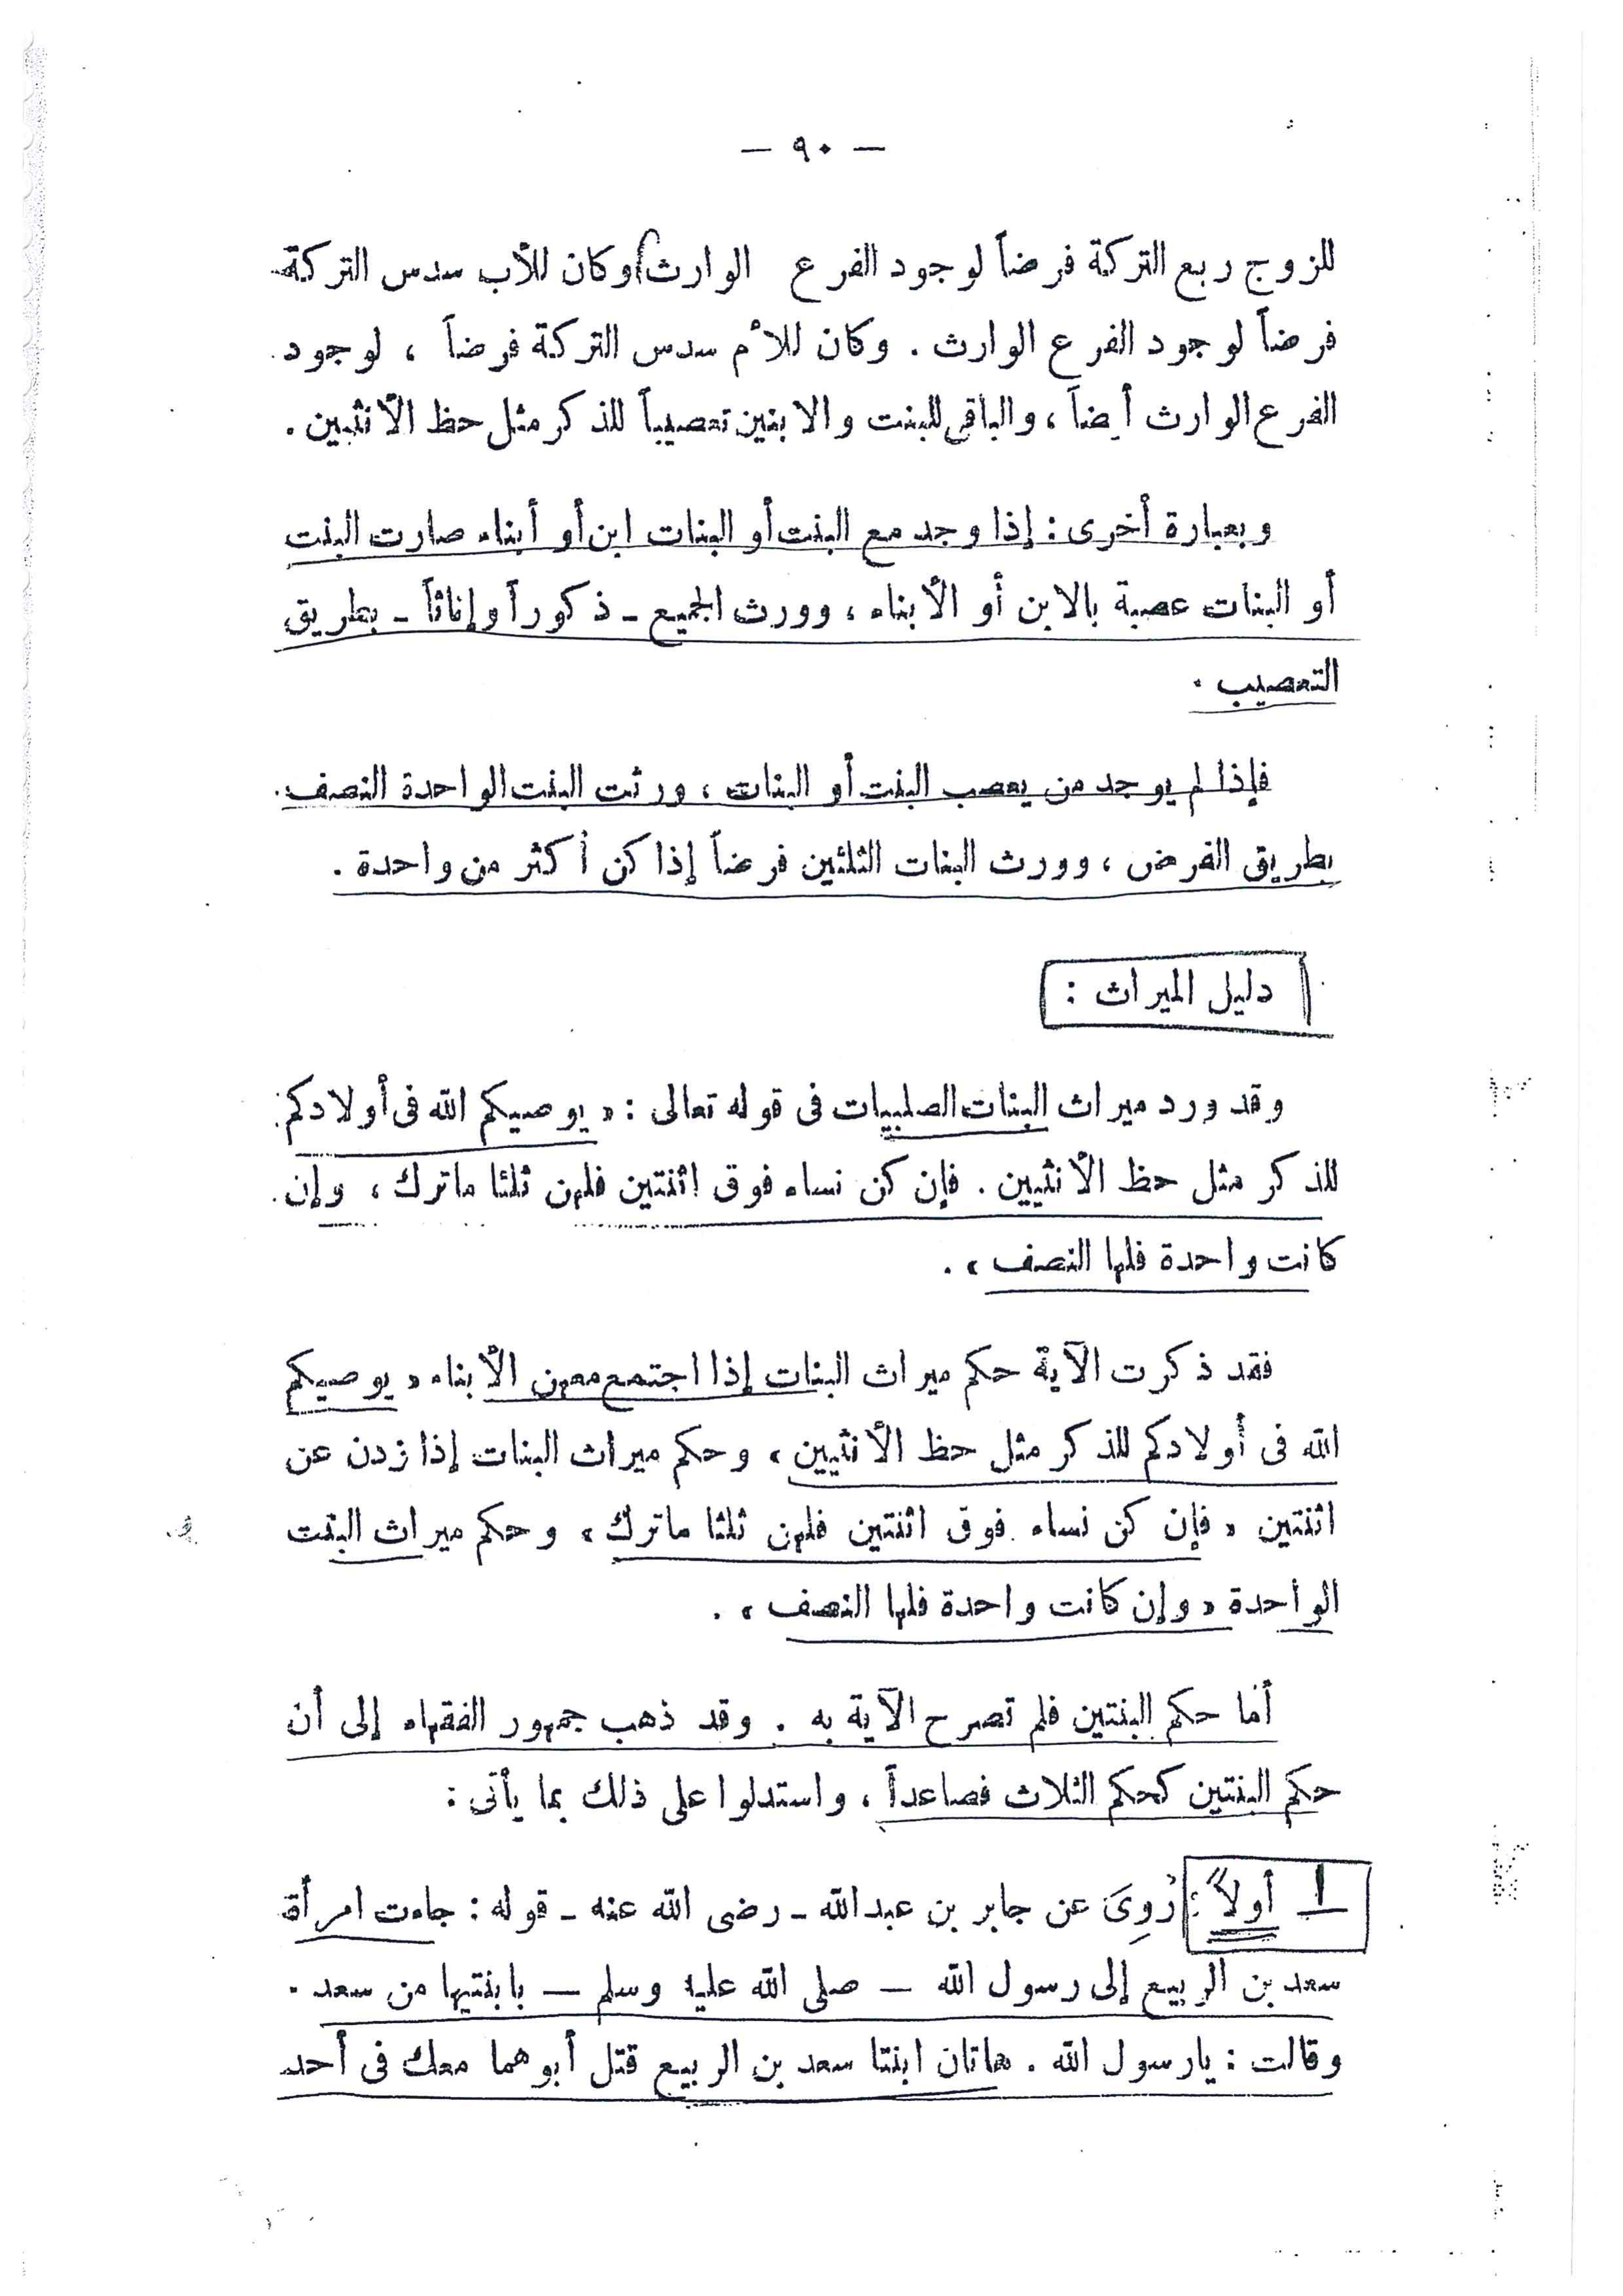 — ٩٠ —
للزوج ربع التركة فرضاً لوجود الفرع الوارث وكان للأب سدس التركة
فرضاً لوجود الفرع الوارث . وكان للأم سدس التركة فرضاً ، لوجود
الفرع الوارث أيضاً ، والباقى للبنت والابنين تعصيباً للذكر مثل حظ الأنثيين .
وبعبارة أخرى : إذا وجد مع البنت أو البنات ابن أو أبناء صارت البنت
أو البنات عصبة بالابن أو الأبناء ، وورث الجميع ـ ذكوراً وإناثاً ـ بطريق
التعصيب .
فإذا لم يوجد من يعصب البنت أو البنات ، ورثت البنت الواحدة النصف
بطريق الفرض ، وورث البنات الثلثين فرضاً إذا كن أكثر من واحدة .
دليل الميراث :
وقد ورد ميراث البنات الصلبيات فى قوله تعالى : « يوصيكم الله فى أولادكم
للذكر مثل حظ الأنثيين . فإن كن نساء فوق اثنتين فلهن ثلثا ماترك ، وإن
كانت واحدة فلها النصف » .
فقد ذكرت الآية حكم ميراث البنات إذا اجتمع معهن الأبناء « يوصيكم
الله فى أولادكم للذكر مثل حظ الأنثيين » وحكم ميراث البنات إذا زدن عن
اثنتين « فإن كن نساء فوق اثنتين فلهن ثلثا ماترك » وحكم ميراث البنت
الواحدة « وإن كانت واحدة فلها النصف » .
أما حكم البنتين فلم تصرح الآية به . وقد ذهب جمهور الفقهاء إلى أن
حكم البنتين كحكم الثلاث فصاعداً ، واستدلوا على ذلك بما يأتى :
١ أولاً : رُوِىَ عن جابر بن عبدالله ـ رضى الله عنه ـ قوله : جاءت امرأة
سعد بن الربيع إلى رسول الله — صلى الله عليه وسلم — بابنتيها من سعد .
وقالت : يارسول الله . هاتان ابنتا سعد بن الربيع قتل أبوهما معك فى أحد